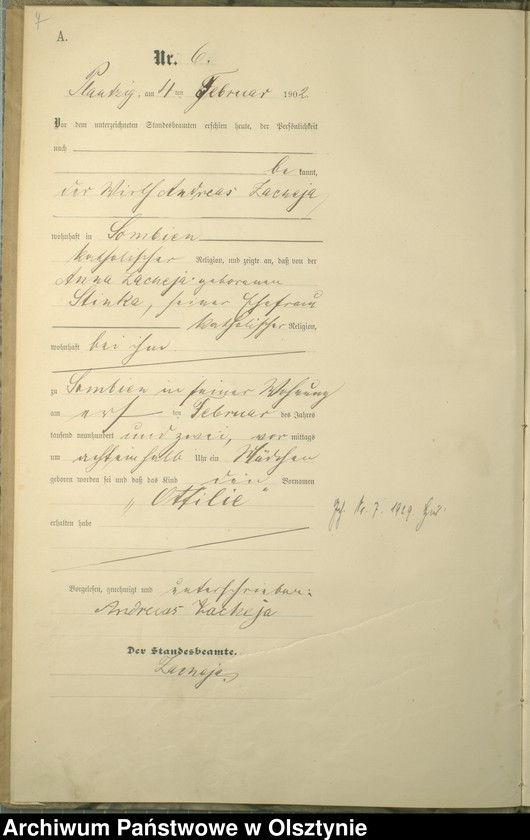 7
A.
Nr. 6.
Plautzig, am 4 ten Februar 1902
Vor dem unterzeichneten Standesbeamten erschien heute, der Persönlichkeit
nach
be kannt,
der Wirth Andreas Zacheja
wohnhaft in Sombien
katholischer Religion, und zeigte an, daß von der
Anna Zacheja geborenen
Stenka, seiner Ehefrau
katholischer Religion,
wohnhaft bei ihm
zu Sombien in seiner Wohnung
am ersten Februar des Jahres
tausend neunhundert und zwei, vor mittags
um achteinhalb Uhr ein Mädchen
geboren worden sei und daß das Kind den Vornamen
„Ottilie“
erhalten habe
Nr. 7. 1929.
Vorgelesen, genehmigt und unterschrieben:
Andreas Zacheja
Der Standesbeamte.
Zacheja
Archiwum Państwowe w Olsztynie